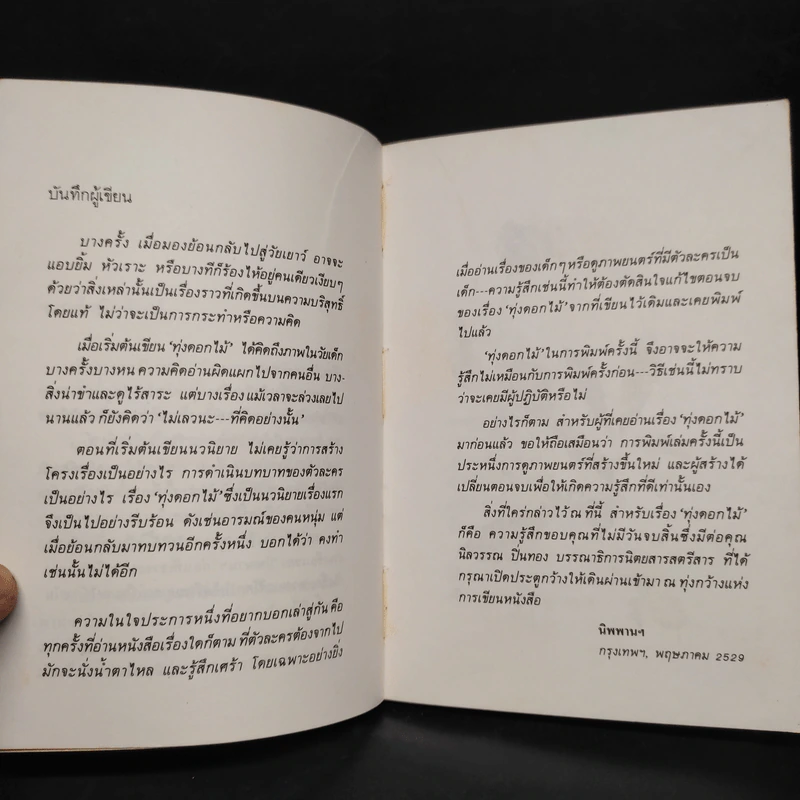 บันทึกผู้เขียน
บางครั้ง เมื่อมองย้อนกลับไปสู่วัยเยาว์ อาจจะ
แอบยิ้ม หัวเราะ หรือบางทีก็ร้องไห้อยู่คนเดียวเงียบๆ
ด้วยว่าสิ่งเหล่านั้นเป็นเรื่องราวที่เกิดขึ้นบนความบริสุทธิ์
โดยแท้ ไม่ว่าจะเป็นการกระทำหรือความคิด
เมื่อเริ่มต้นเขียน ‘ทุ่งดอกไม้’ ได้คิดถึงภาพในวัยเด็ก
บางครั้งบางหน ความคิดอ่านผิดแผกไปจากคนอื่น บาง-
สิ่งน่าขำและดูไร้สาระ แต่บางเรื่องแม้เวลาจะล่วงเลยไป
นานแล้ว ก็ยังคิดว่า ‘ไม่เลวนะ---ที่คิดอย่างนั้น’
ตอนที่เริ่มต้นเขียนนวนิยาย ไม่เคยรู้ว่าการสร้าง
โครงเรื่องเป็นอย่างไร การดำเนินบทบาทของตัวละคร
เป็นอย่างไร เรื่อง ‘ทุ่งดอกไม้’ ซึ่งเป็นนวนิยายเรื่องแรก
จึงเป็นไปอย่างรีบร้อน ดังเช่นอารมณ์ของคนหนุ่ม แต่
เมื่อย้อนกลับมาทบทวนอีกครั้งหนึ่ง บอกได้ว่า คงทำ
เช่นนั้นไม่ได้อีก
ความในใจประการหนึ่งที่อยากบอกเล่าสู่กัน คือ
ทุกครั้งที่อ่านหนังสือเรื่องใดก็ตาม ที่ตัวละครต้องจากไป
มักจะนั่งน้ำตาไหล และรู้สึกเศร้า โดยเฉพาะอย่างยิ่ง
เมื่ออ่านเรื่องของเด็กๆ หรือดูภาพยนตร์ที่มีตัวละครเป็น
เด็ก---ความรู้สึกเช่นนี้ทำให้ต้องตัดสินใจแก้ไขตอนจบ
ของเรื่อง ‘ทุ่งดอกไม้’ จากที่เขียนไว้เดิมและเคยพิมพ์
ไปแล้ว
‘ทุ่งดอกไม้’ ในการพิมพ์ครั้งนี้ จึงอาจจะให้ความ
รู้สึกไม่เหมือนกับการพิมพ์ครั้งก่อน---วิธีเช่นนี้ไม่ทราบ
ว่าจะเคยมีผู้ปฏิบัติหรือไม่
อย่างไรก็ตาม สำหรับผู้ที่เคยอ่านเรื่อง ‘ทุ่งดอกไม้’
มาก่อนแล้ว ขอให้ถือเสมือนว่า การพิมพ์เล่มครั้งนี้เป็น
ประหนึ่งการดูภาพยนตร์ที่สร้างขึ้นใหม่ และผู้สร้างได้
เปลี่ยนตอนจบเพื่อให้เกิดความรู้สึกที่ดีเท่านั้นเอง
สิ่งที่ใคร่กล่าวไว้ ณ ที่นี้ สำหรับเรื่อง ‘ทุ่งดอกไม้’
ก็คือ ความรู้สึกขอบคุณที่ไม่มีวันจบสิ้นซึ่งมีต่อคุณ
นิลวรรณ ปิ่นทอง บรรณาธิการนิตยสารสตรีสาร ที่ได้
กรุณาเปิดประตูกว้างให้เดินผ่านเข้ามา ณ ทุ่งกว้างแห่ง
การเขียนหนังสือ
นิพพานฯ
กรุงเทพฯ, พฤษภาคม 2529